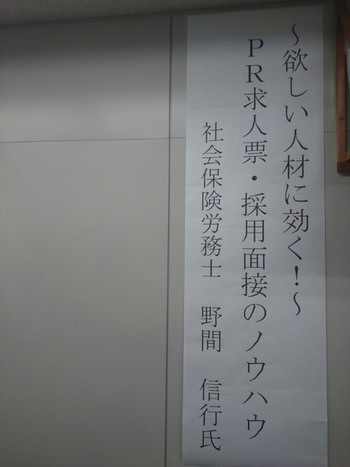 ～欲しい人材に効く！～
ＰＲ求人票・採用面接のノウハウ
社会保険労務士　野間　信行氏